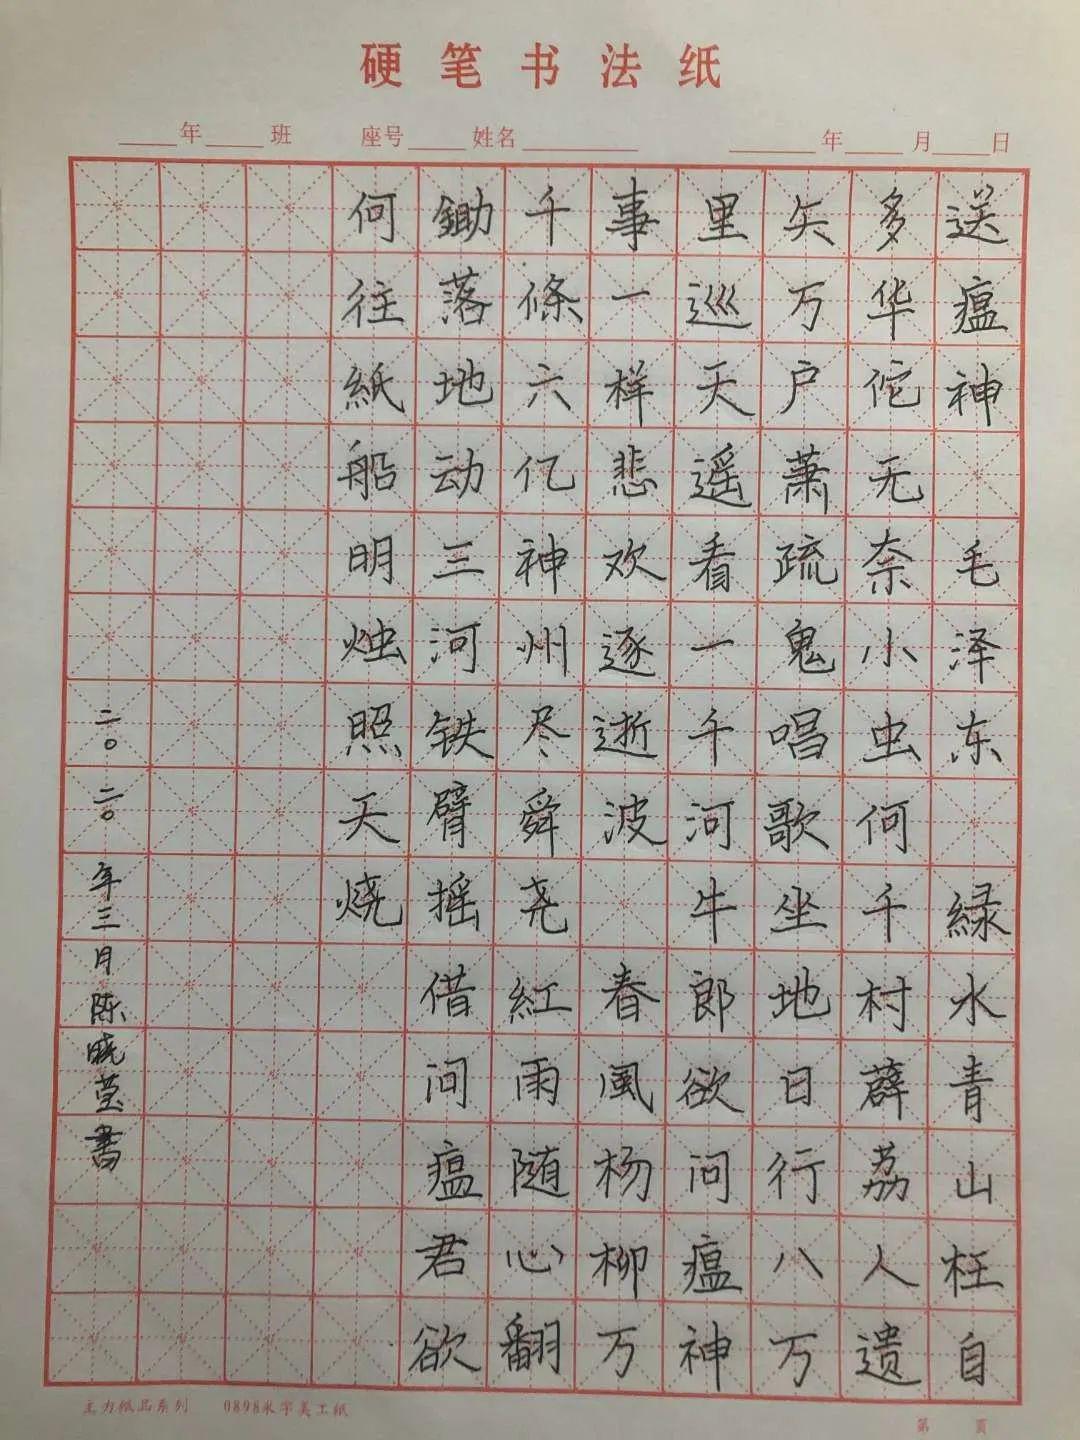 硬笔书法纸
年 班 座号 姓名 年 月 日
送瘟神 毛泽东 緑水青山枉自
多华佗无奈小虫何千村薜荔人遗
矢万户萧疏鬼唱歌坐地日行八万
里巡天遥看一千河牛郎欲问瘟神
事一样悲欢逐逝波 春風杨柳万
千條六亿神州尽舜尧紅雨随心翻
鋤落地动三河铁臂摇借问瘟君欲
何往紙船明烛照天烧
二〇二〇年三月陈晓莹書
主力纸品系列 0898米字美工纸
第 页